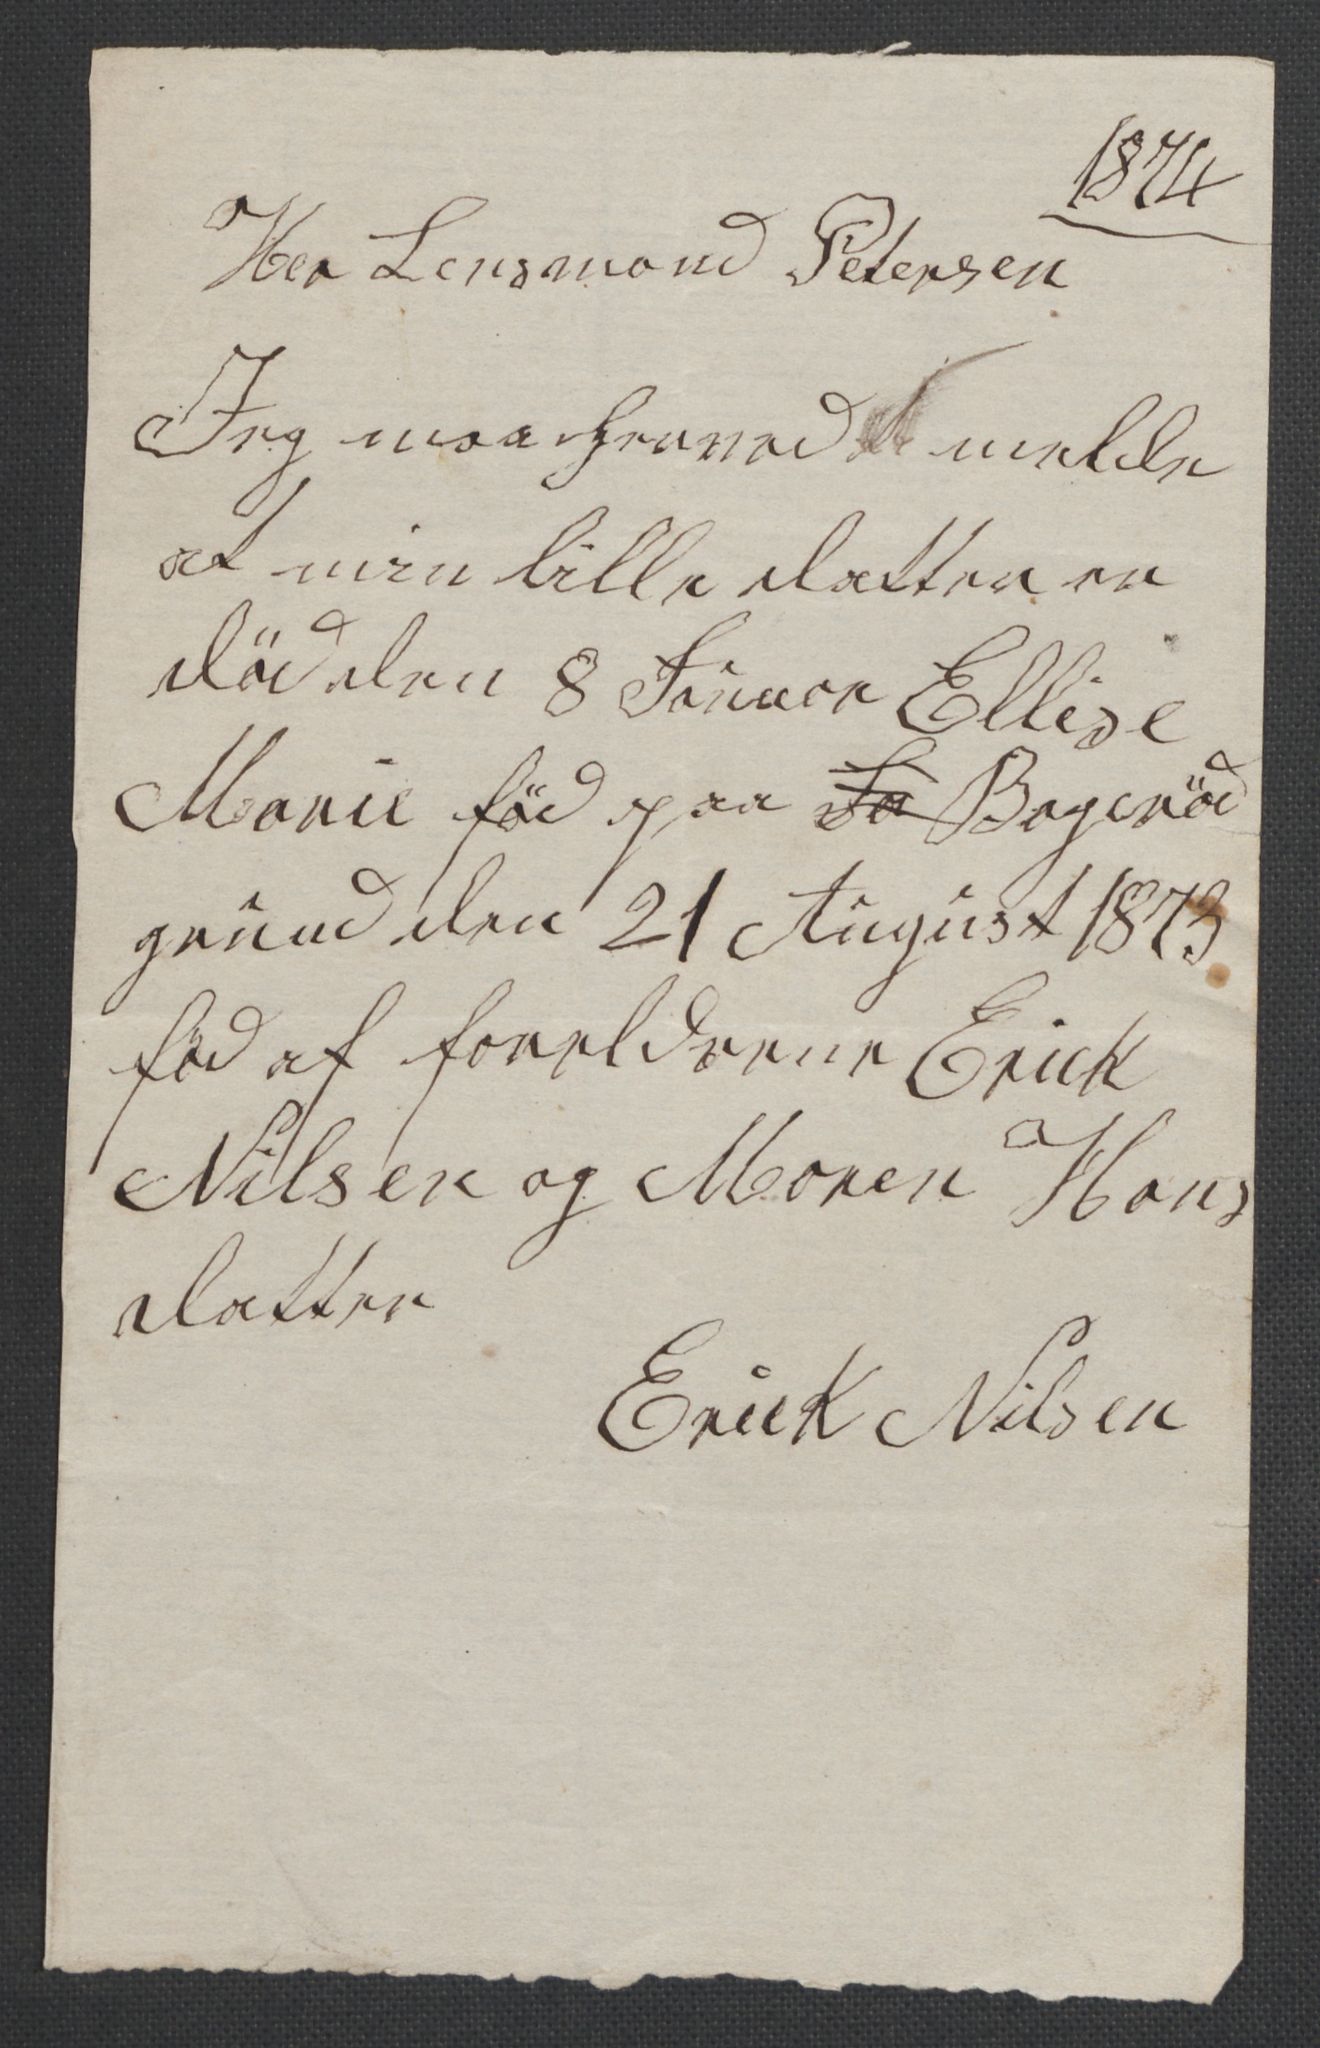 1874
Her Lensmand Petersen
Jeg maa herved melde
at min lille datter er
död den 8 Januar Ellise
Marie föd paa Bögeröd
grund den 21 August 1873
föd af foreldrene Erick
Nilsen og Maren Hans
datter
Erick Nilsen